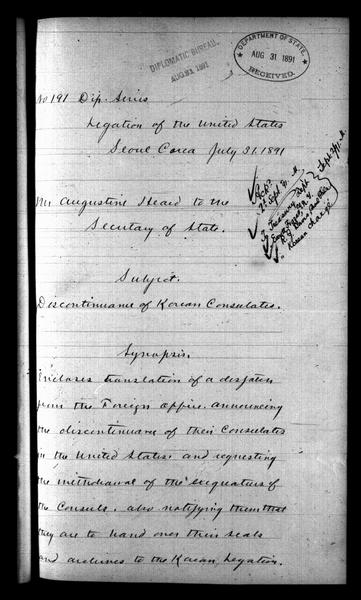 DIPLOMATIC BUREAU.
AUG 31 1891
DEPARTMENT OF STATE.
AUG 31 1891
RECEIVED.
No 191 Dip. Series
Legation of the United States
Seoul Corea July 31. 1891
Mr Augustine Heard to the
Secretary of State.
Subject.
Discontinuance of Korean Consulates.
Synopsis.
Encloses translation of a despatch
from the Foreign office, announcing
the discontinuance of their Consulates
in the United States, and requesting
the withdrawal of the exequaturs of
the Consuls, also notifying them that
they are to hand over their seals
and archives to the Korean Legation.
To Treasury Dept
Korean